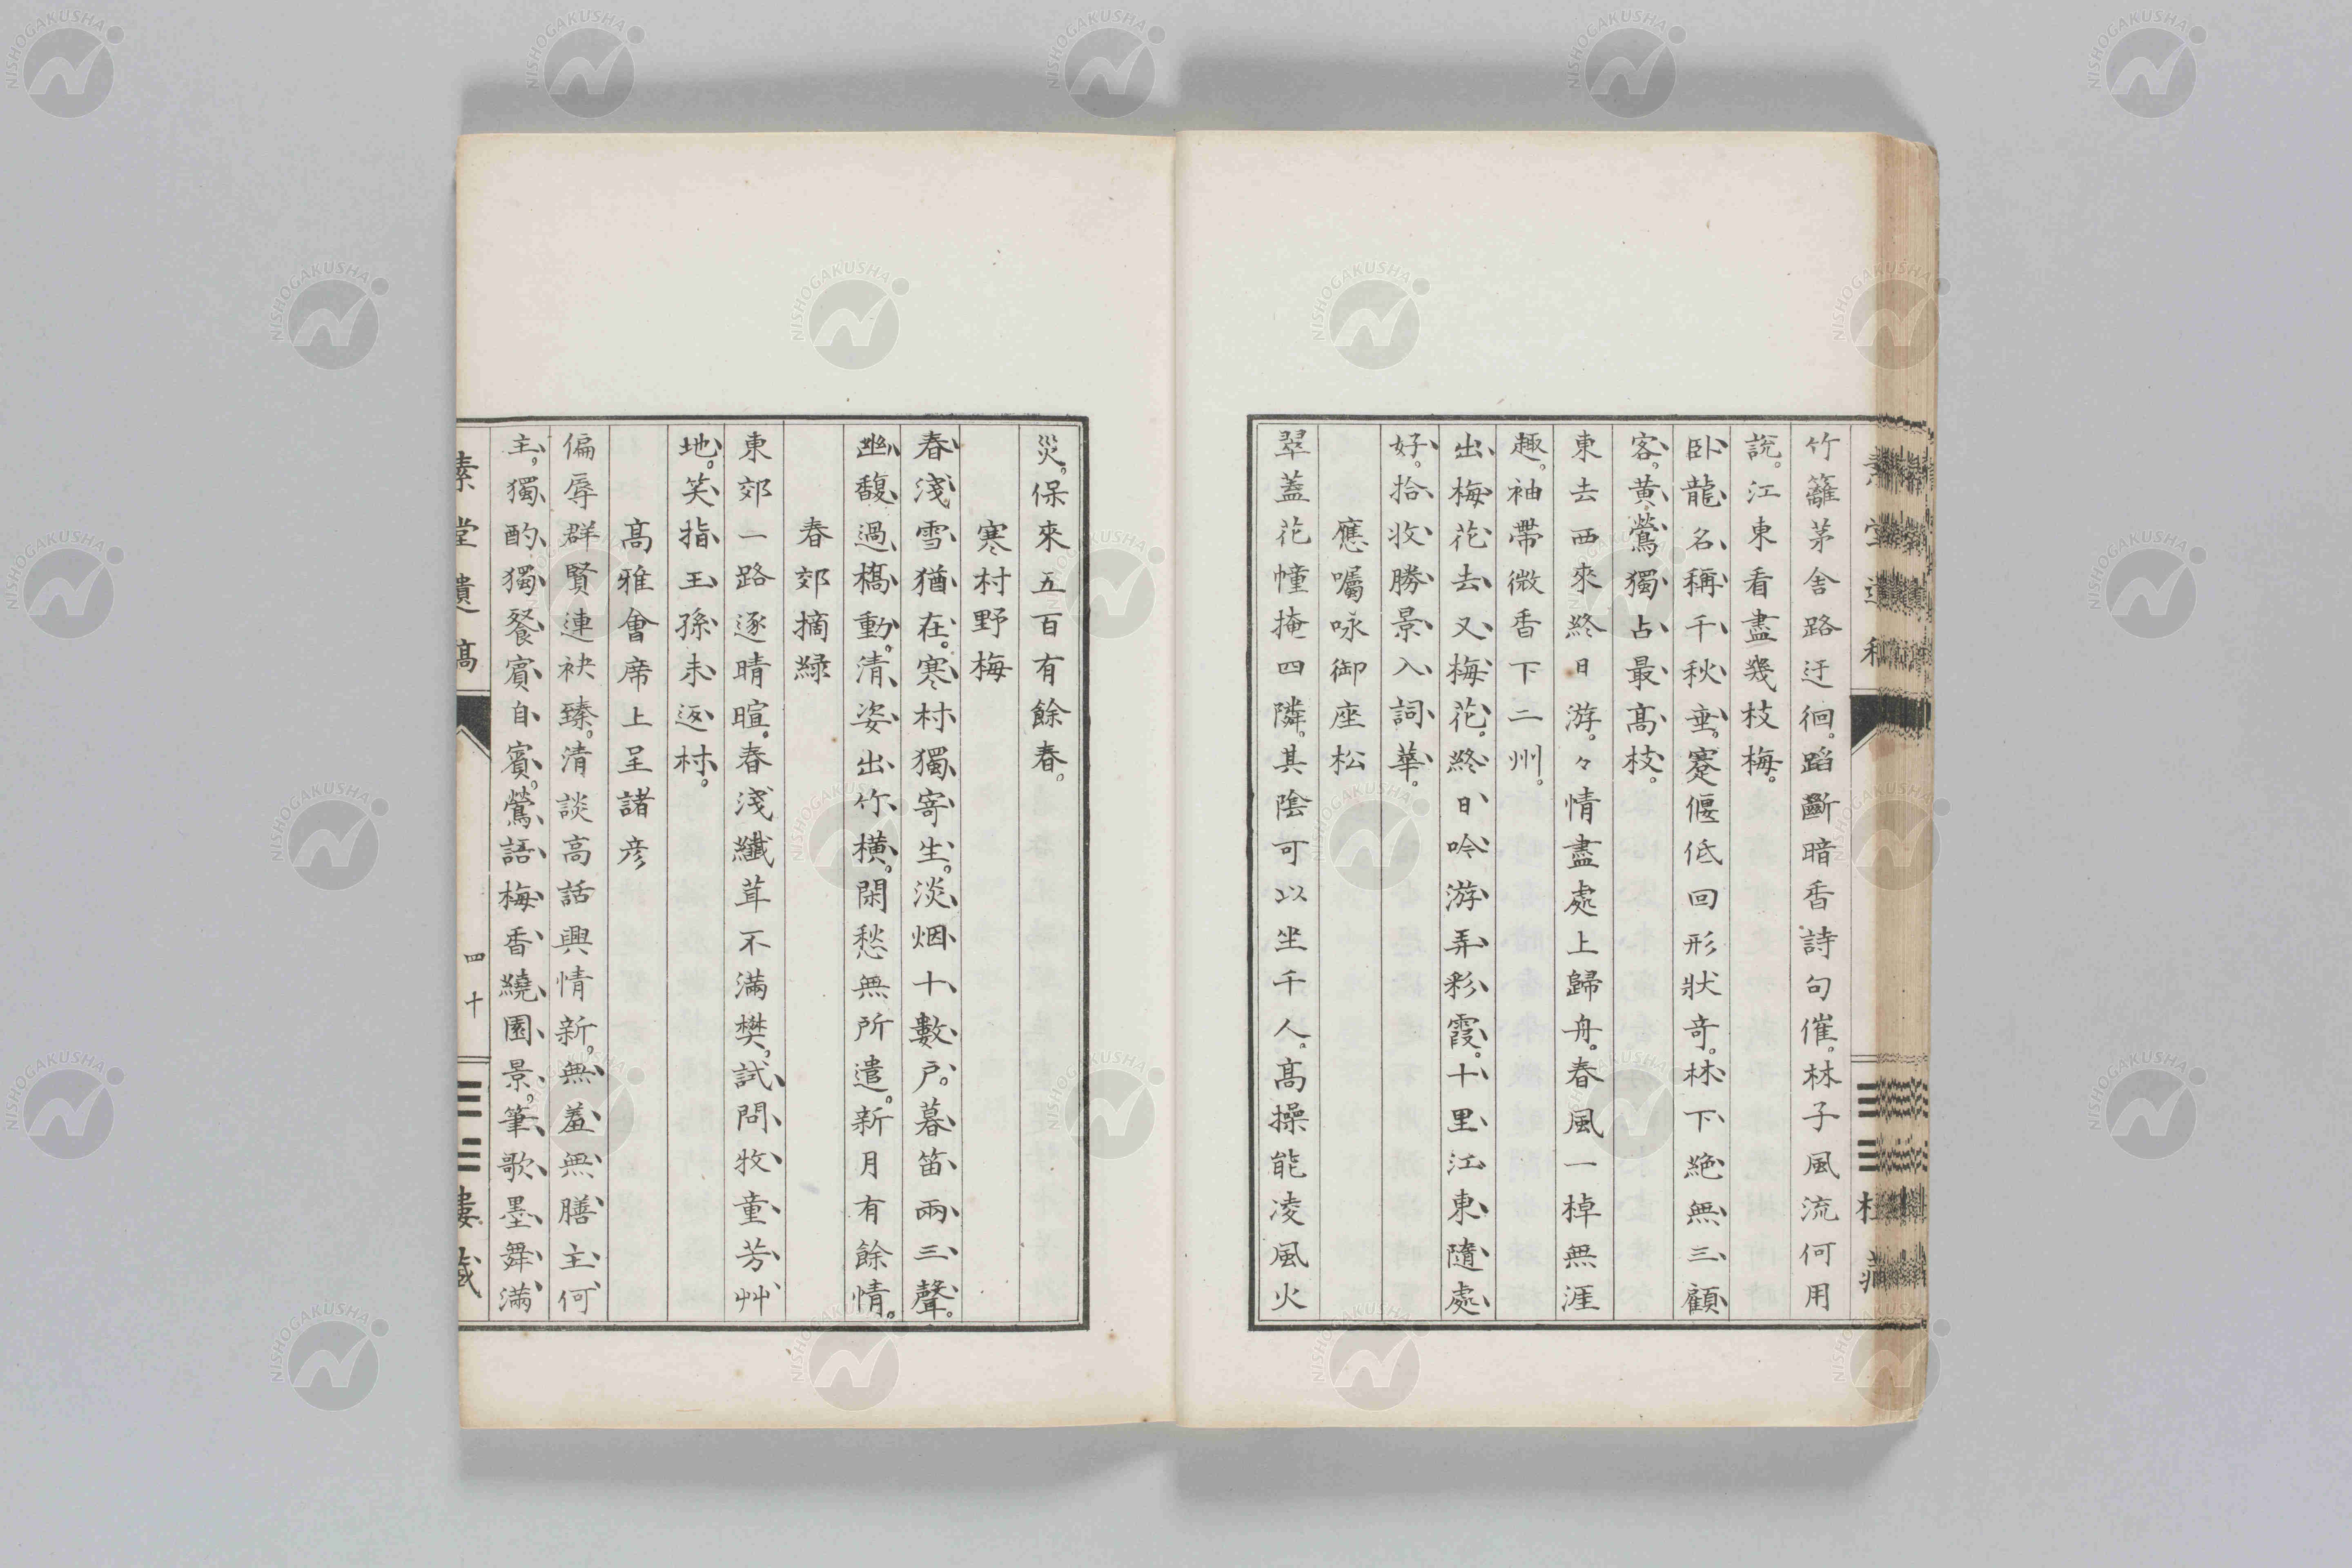 竹籬茅舍路迂徊。蹈斷暗香詩句催。林子風流何用
說。江東看盡幾枝梅。
臥龍名稱千秋垂。蹇偃低回形狀奇。林下絶無三顧
客。黃鶯獨占最高枝。
東去西來終日游。々情盡處上歸舟。春風一棹無涯
趣。袖帶微香下二州。
出梅花去又梅花。終日吟游弄彩霞。十里江東隨處
好。拾收勝景入詞華。
應囑咏御座松
翠蓋花幢掩四隣。其陰可以坐千人。高操能凌風火
災。保來五百有餘春。
寒村野梅
春淺雪猶在。寒村獨寄生。淡烟十數戶。暮笛兩三聲。
幽馥過橋動。清姿出竹橫。閑愁無所遣。新月有餘情。
春郊摘綠
東郊一路逐晴暄。春淺纖茸不滿樊。試問牧童芳艸
地。笑指王孫未返村。
高雅會席上呈諸彦
偏辱群賢連袂臻。清談高話興情新。無羞無膳主何
主。獨酌獨餐賓自賓。鶯語梅香繞園景。筆歌墨舞滿
素堂遺稿
四十
三三樓藏
NISHOGAKUSHA